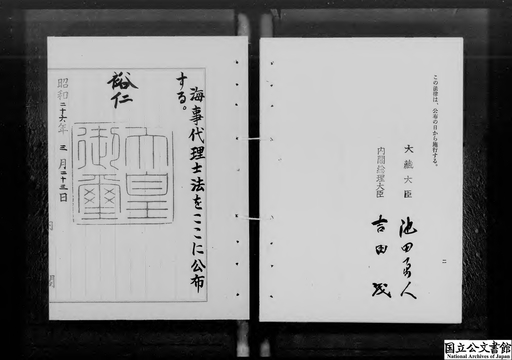 海事代理士法をここに公布
する。
裕仁
天皇御璽
昭和二十六年三月二十三日
内閣
この法律は、公布の日から施行する。
大蔵大臣 池田勇人
内閣総理大臣 吉田茂
二
国立公文書館
National Archives of Japan